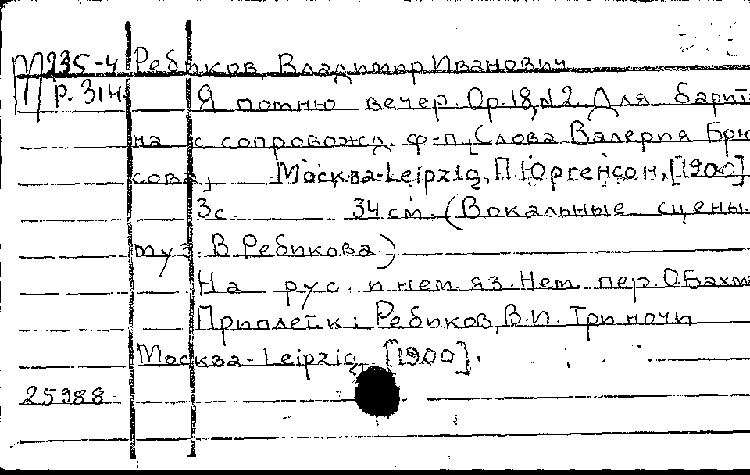 П235-4 Ребиков Владимир Иванович
Р. 314
Я помню вечер. Op. 18, N2. Для барито
на с сопровожд. ф-п. [Слова Валерия Брю
сова, Москва-Leipzig, П. Юргенсон, [1900].
3с. 34 см. (Вокальные сцены.
муз. В. Ребикова)
На рус. и нем. яз. Нем. пер. О. Бахм
Приплетк: Ребиков, В.И. Три ночи
Москва-Leipzig, [1900].
25988